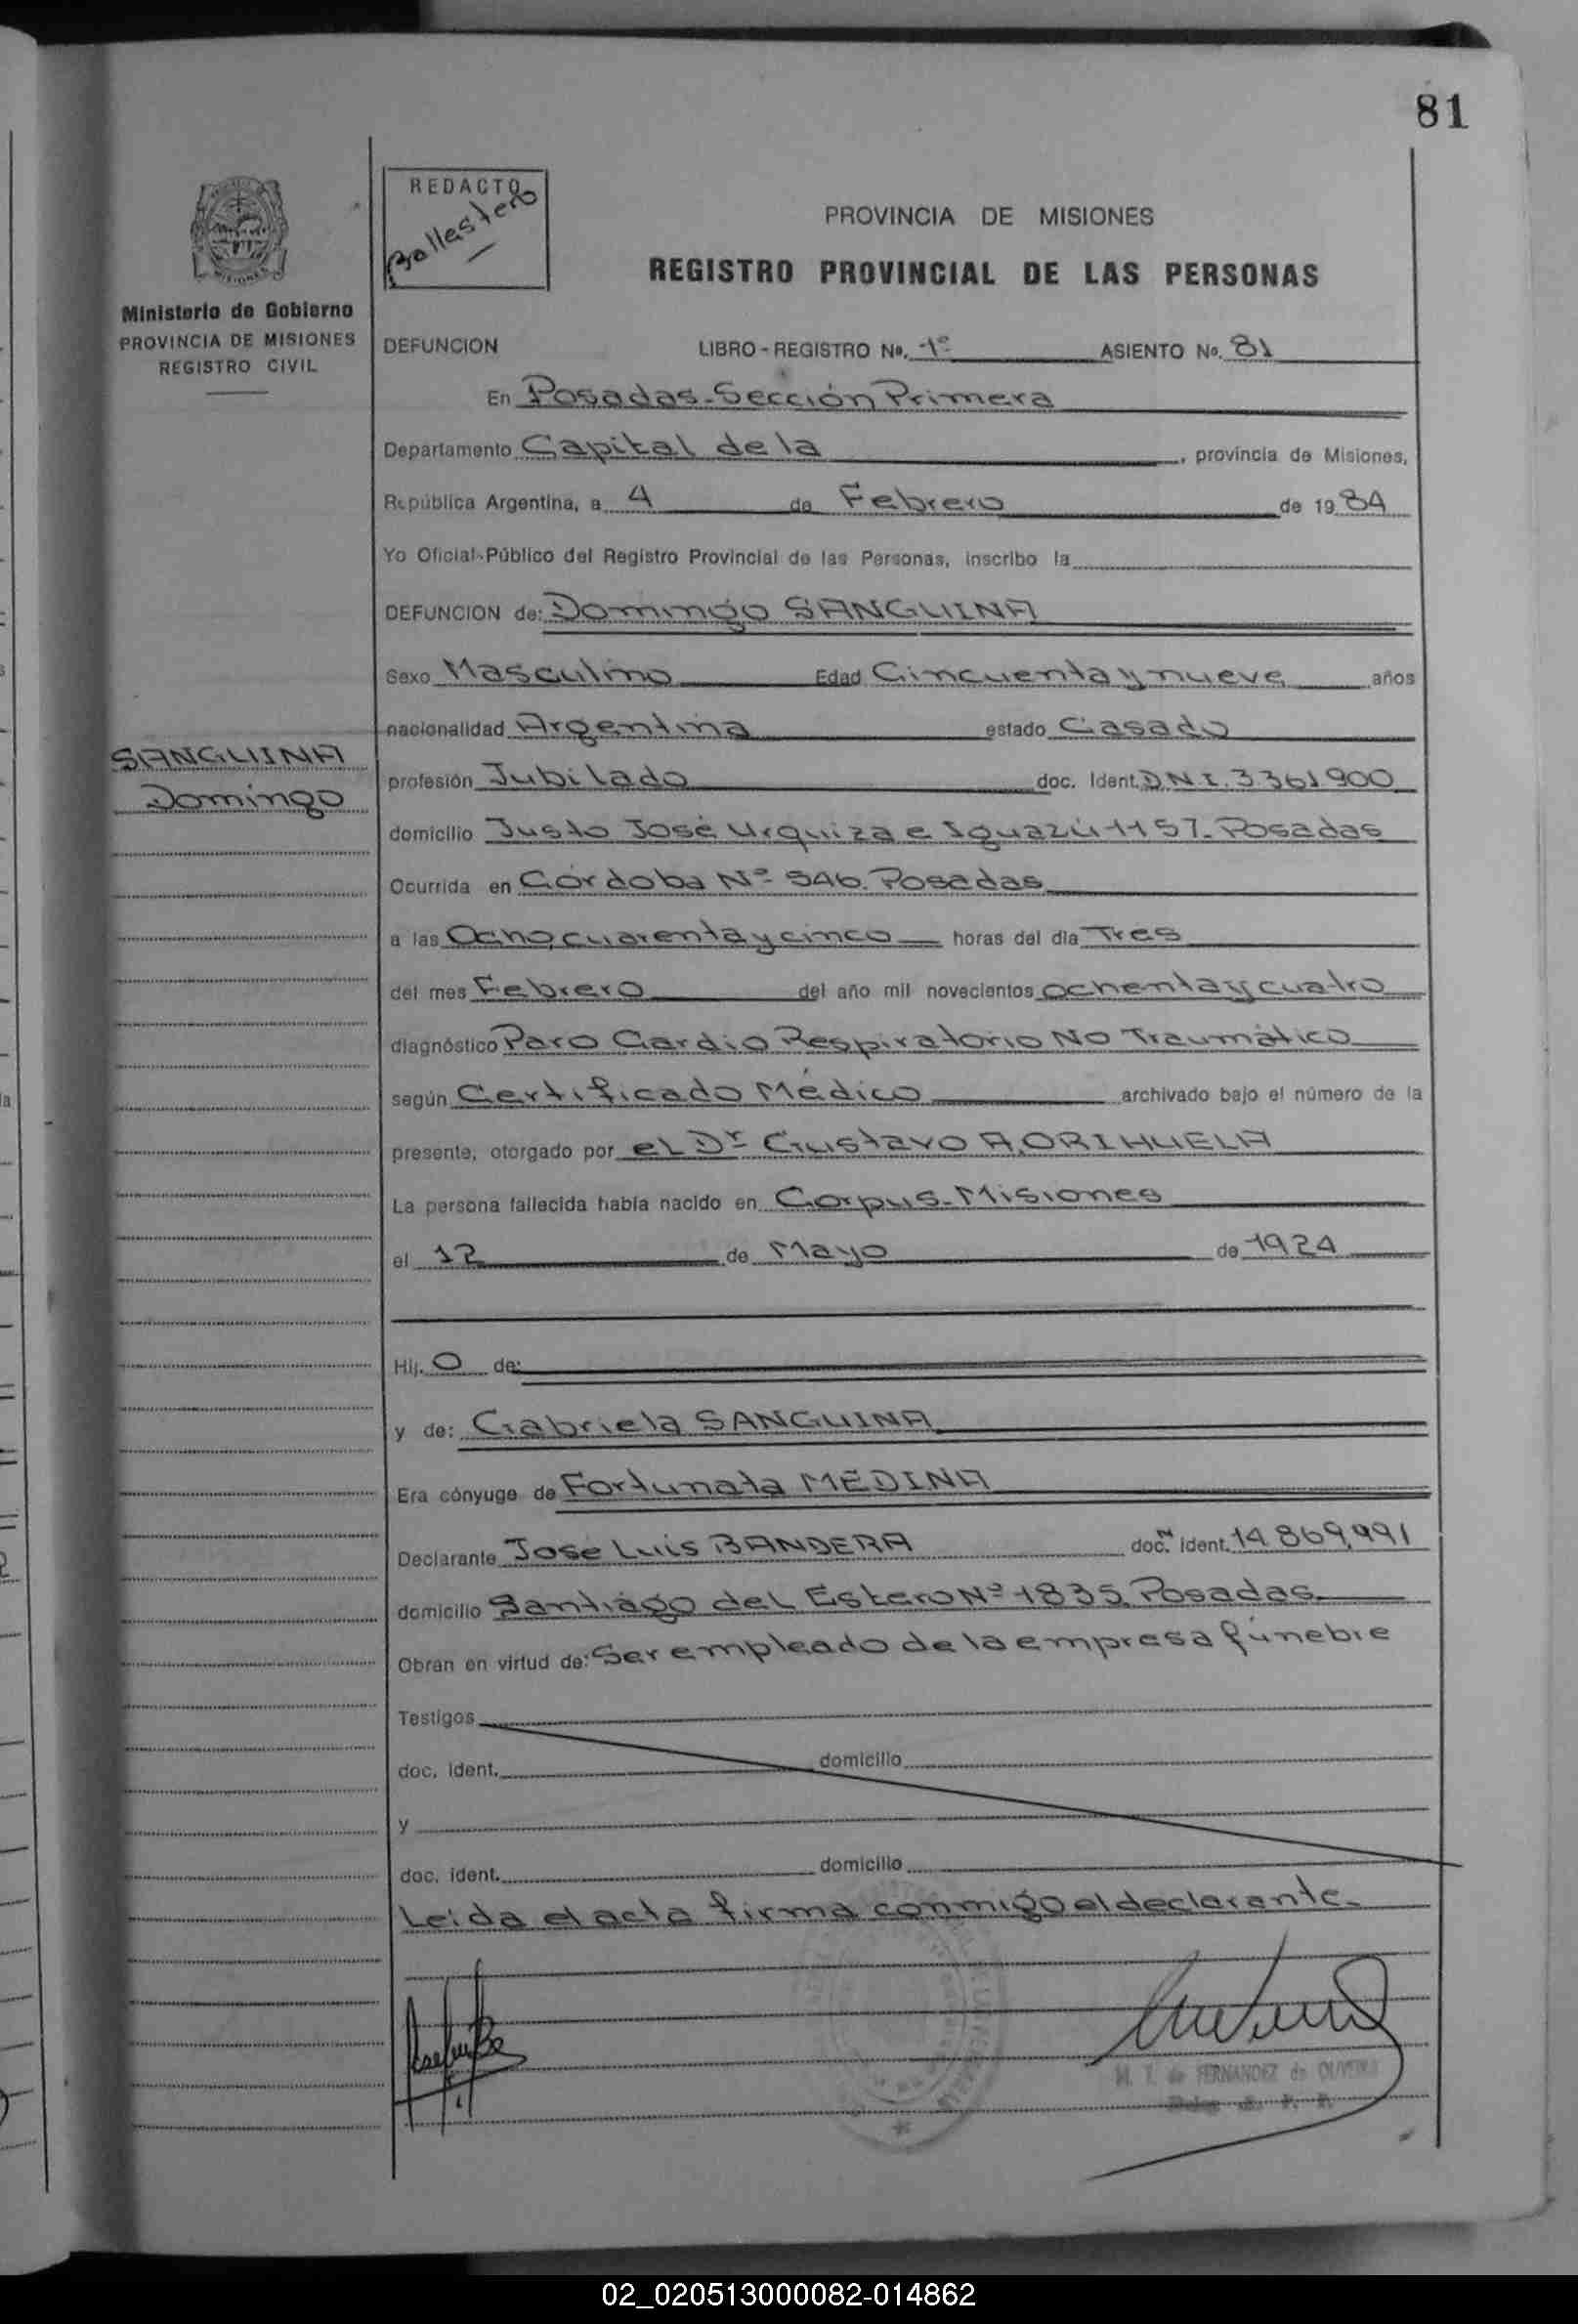 81
REDACTO
Ballestero
PROVINCIA DE MISIONES
REGISTRO PROVINCIAL DE LAS PERSONAS
Ministerio de Gobierno
PROVINCIA DE MISIONES
REGISTRO CIVIL
DEFUNCION LIBRO-REGISTRO No. 1º ASIENTO No. 81
En Posadas-Sección Primera
Departamento Capital de la, provincia de Misiones,
República Argentina, a 4 de Febrero de 1984
Yo Oficial Público del Registro Provincial de las Personas, inscribo la
DEFUNCION de: Domingo SANGUINA
Sexo Masculino Edad Cincuenta y nueve años
nacionalidad Argentina estado Casado
SANGUINA
Domingo
profesión Jubilado doc. Ident. D.N.I. 3.361900
domicilio Justo José Urquiza e Iguazú 1157. Posadas
Ocurrida en Córdoba Nº 546. Posadas
a las Ocho, cuarenta y cinco horas del día Tres
del mes Febrero del año mil novecientos ochenta y cuatro
diagnóstico Paro Cardio Respiratorio No Traumático
según Certificado Médico archivado bajo el número de la
presente, otorgado por el Dr Gustavo A. ORIHUELA
La persona fallecida había nacido en Corpus-Misiones
el 12 de Mayo de 1924
Hij. o de:
y de: Gabriela SANGUINA
Era cónyuge de Fortunata MEDINA
Declarante José Luis BANDERA doc. Ident. Nº 14.869.991
domicilio Santiago del Estero Nº 1835. Posadas
Obran en virtud de: Ser empleado de la empresa fúnebre
Testigos
doc. Ident. domicilio
y
doc. ident. domicilio
Leída el acta firma conmigo el declarante.
M. T. de FERNANDEZ de OLIVEIRA
02_020513000082-014862